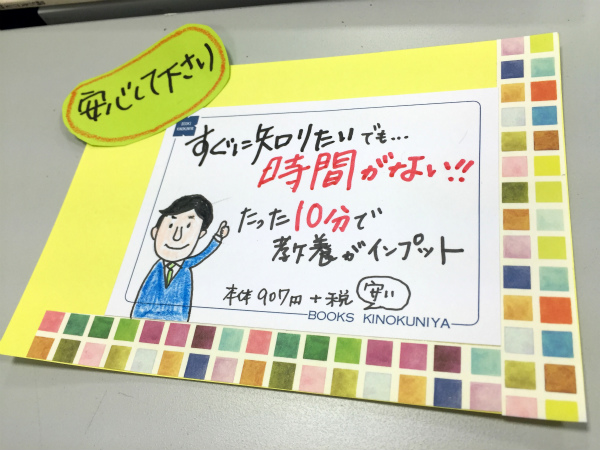 安心して下さい
すぐに知りたいでも…
時間がない!!
たった10分で
教養がインプット
本体907円+税 安い
BOOKS KINOKUNIYA